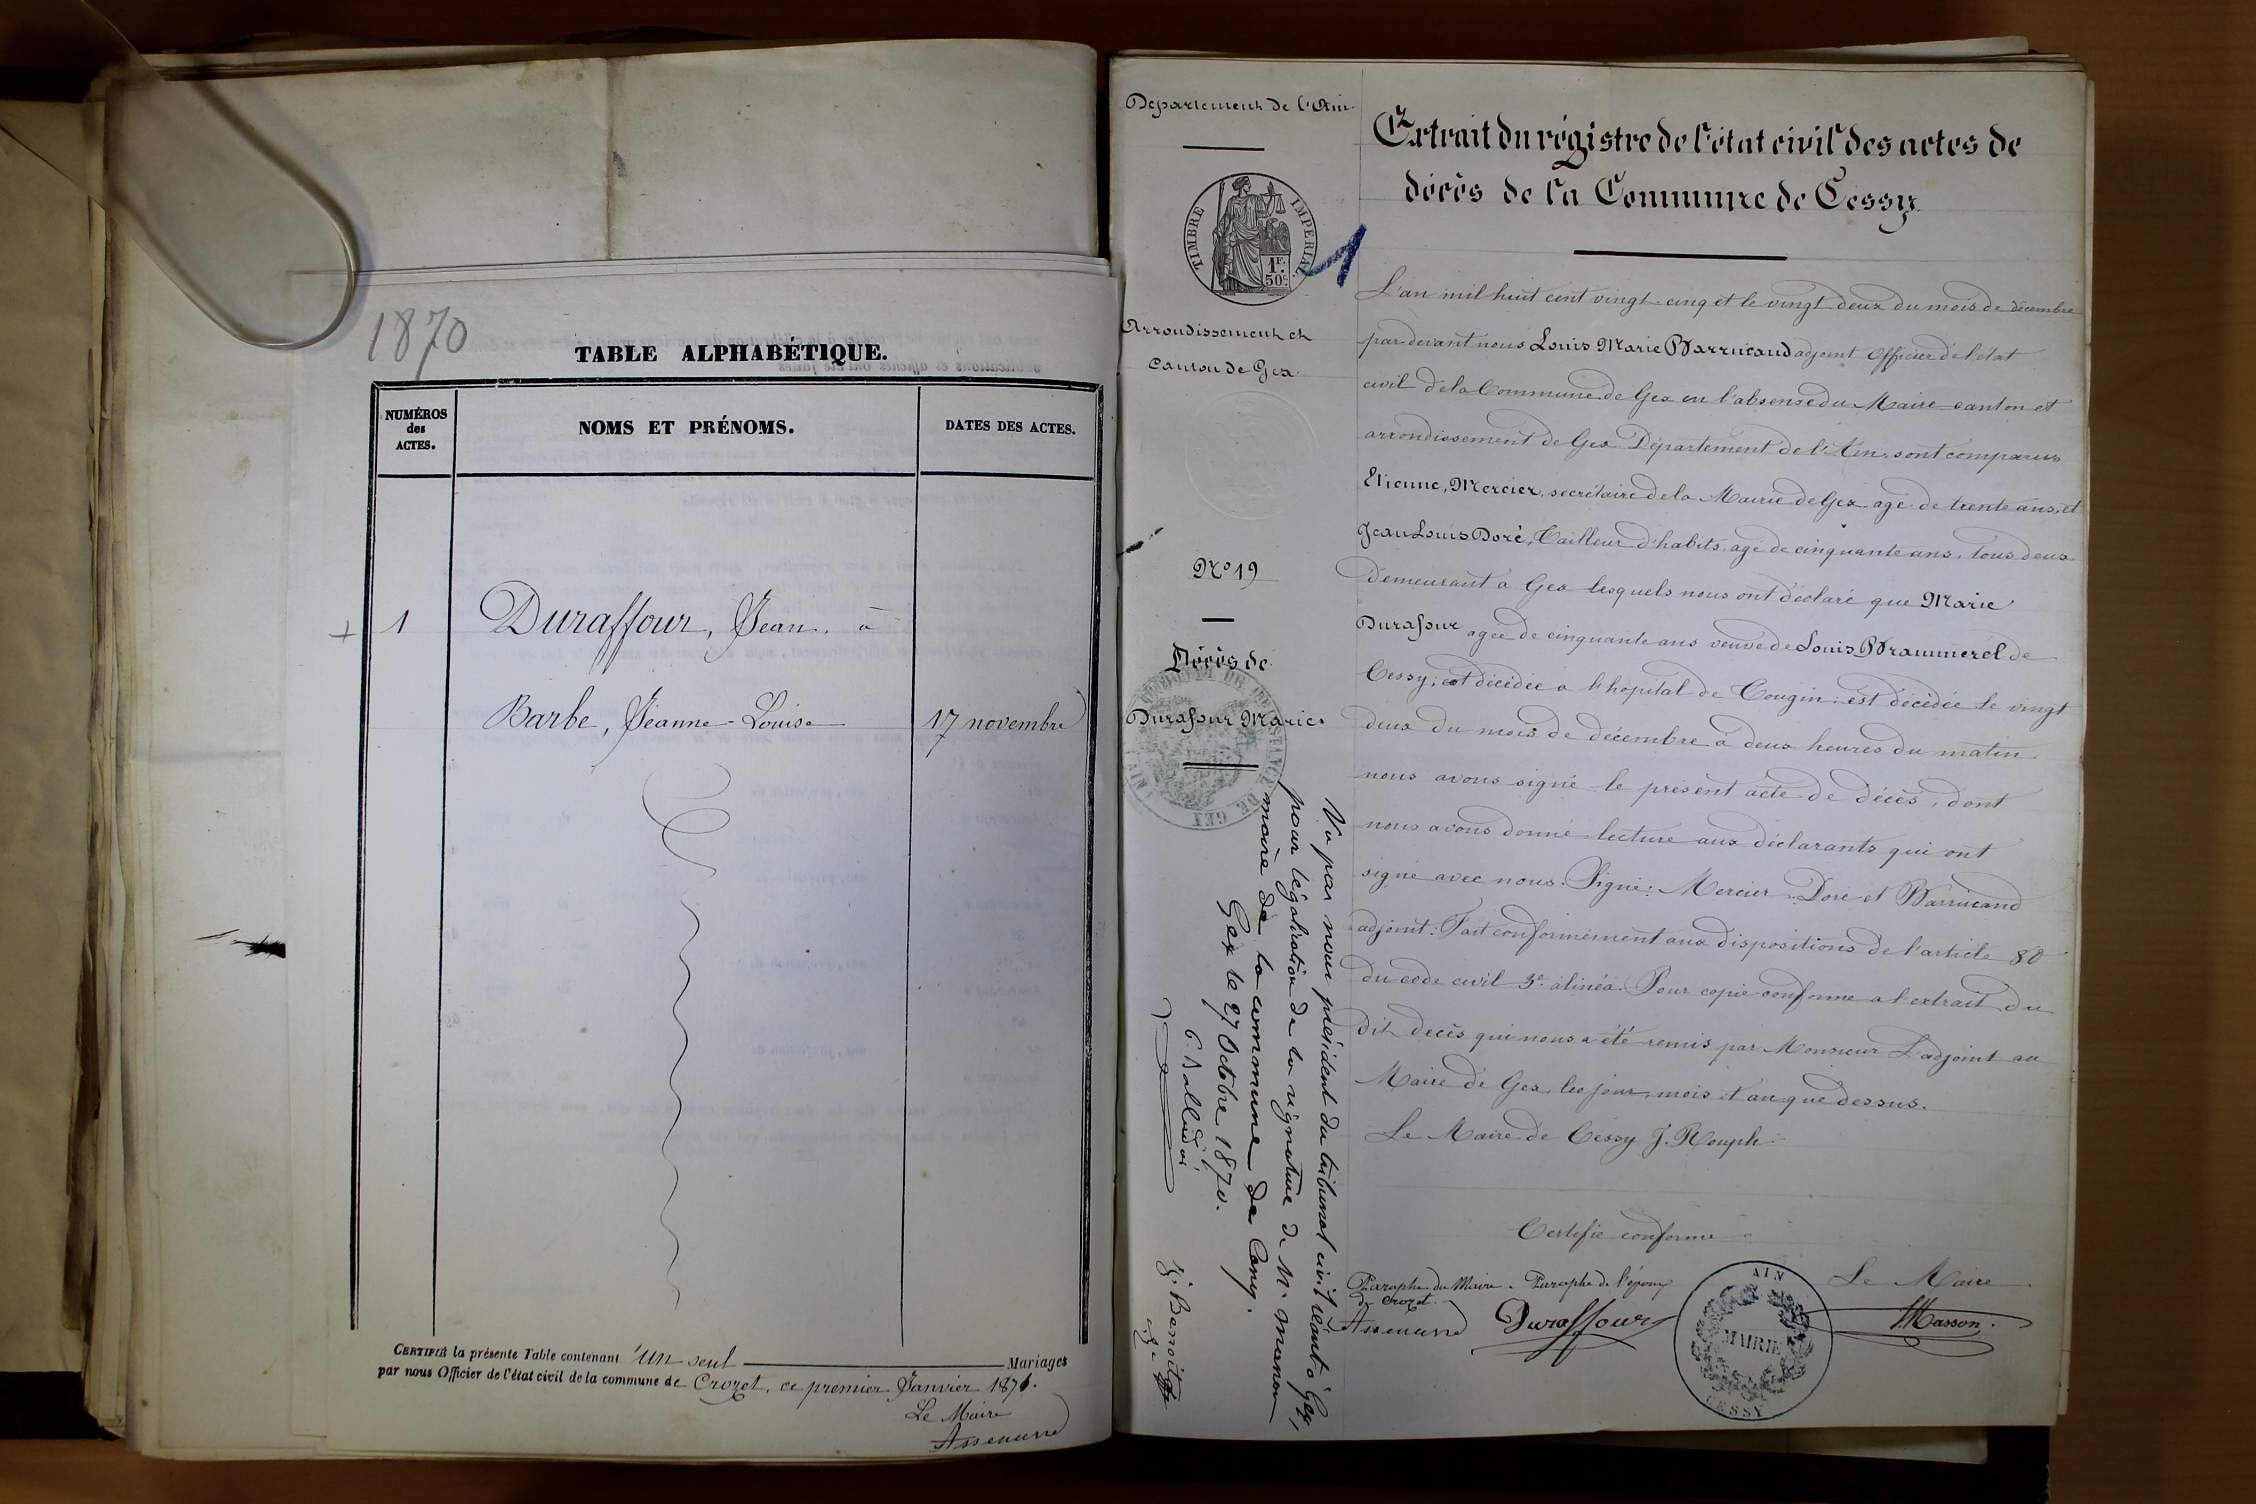 1870
TABLE ALPHABÉTIQUE.
NUMÉROS des ACTES.
NOMS ET PRÉNOMS.
DATES DES ACTES.
1
Duraffour, Jean, à
Barbe, Jeanne-Louise
17 novembre
CERTIFIÉ la présente Table contenant Un seul Mariages
par nous Officier de l'état civil de la commune de Crozet, ce premier Janvier 1871.
Le Maire
Département de l'Ain
TIMBRE IMPERIAL
1F. 50c
1
Arrondissement et
Canton de Gex
No 19
Décès de
Durafour Marie
Extrait du régistre de l'état civil des actes de
décès de la Commune de Cessy
L'an mil huit cent vingt-cinq et le vingt deux du mois de décembre
par devant nous Louis Marie Barrucand adjoint Officier de l'état
civil de la Commune de Gex en l'absence du Maire canton et
arrondissement de Gex Département de l'Ain, sont comparus
Etienne, Mercier, secrétaire de la Mairie de Gex agé de trente ans, et
Jean Louis Doré, Tailleur d'habits, agé de cinquante ans, tous deux
demeurant à Gex lesquels nous ont déclaré que Marie
Durafour agée de cinquante ans veuve de Louis de
Cessy, est décédée a l'hopital de Tougin est décédée le vingt
deux du mois de décembre à deux heures du matin
nous avons signé le présent acte de décès, dont
nous avons donné lecture aux déclarants qui ont
signé avec nous. Signé: Mercier, Doré et Barrucand
adjoint: Fait conformément aux dispositions de l'article 80
du code civil 3e alinéa. Pour copie conforme a l'extrait du
dit décès qui nous a été remis par Monsieur L'adjoint au
Maire de Gex les jour, mois et an que dessus.
Le Maire de Cessy J. Rouph
Certifié conforme
Le Maire
Masson.
Paraphe du Maire
de Crozet.
Paraphe de l'époux
Duraffour
AIN
MAIRIE
CESSY
Vu par nous président du tribunal civil séant à Gex,
pour légalisation de la signature de M. masson
maire de la commune de Cessy.
Gex le 27 Octobre 1870.